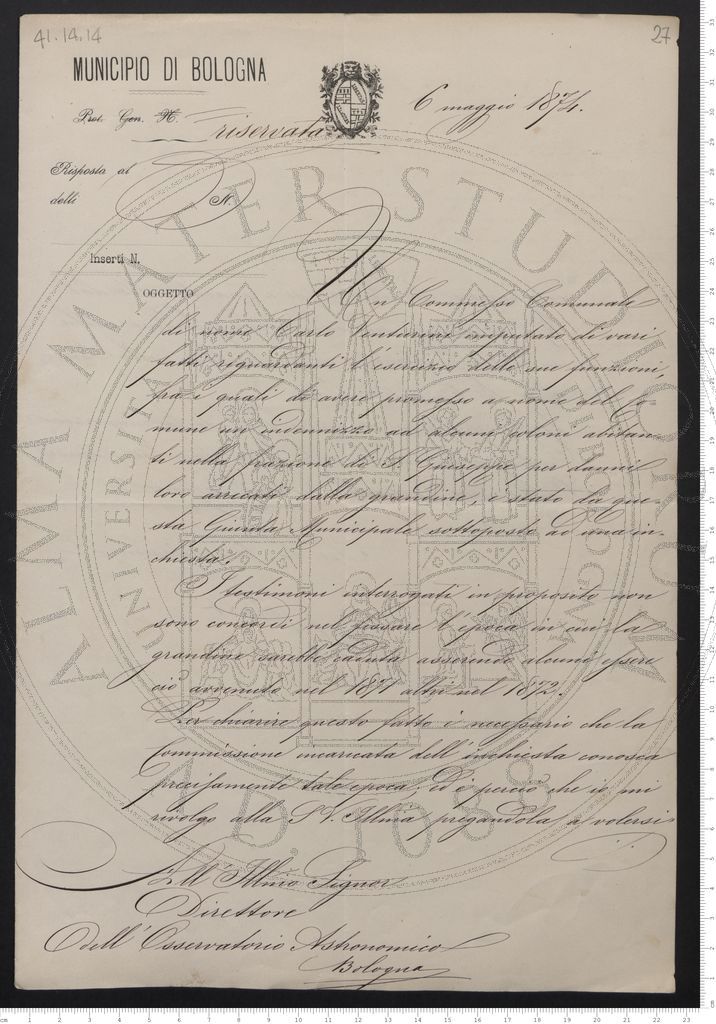 41.14.14
27
MUNICIPIO DI BOLOGNA
6 maggio 1874.
Prot. Gen. N.
riservata
Risposta al
delli N.
Inserti N.
OGGETTO
Un Commesso Comunale
di nome Carlo Venturini imputato di vari
fatti riguardanti l'esercizio delle sue funzioni,
fra i quali di avere promesso a nome del Co-
mune un indennizzo ad alcuni coloni abitan-
ti nella frazione di S. Giuseppe per danni
loro arrecati dalla grandine, è stato da que-
sta Giunta Municipale sottoposto ad una in-
chiesta.
I testimoni interrogati in proposito non
sono concordi nel fissare l'epoca in cui la
grandine sarebbe caduta asserendo alcuni essere
ciò avvenuto nel 1871 altri nel 1872.
Per chiarire questo fatto è necessario che la
Commissione incaricata dell'inchiesta conosca
precisamente tale epoca, ed è perciò che io mi
rivolgo alla S. V. Illma pregandola a volersi
All'Illmo Signor
Direttore
dell'Osservatorio Astronomico
Bologna
ALMA MATER STUDIORUM
UNIVERSITÀ DI BOLOGNA
A.D. 1088